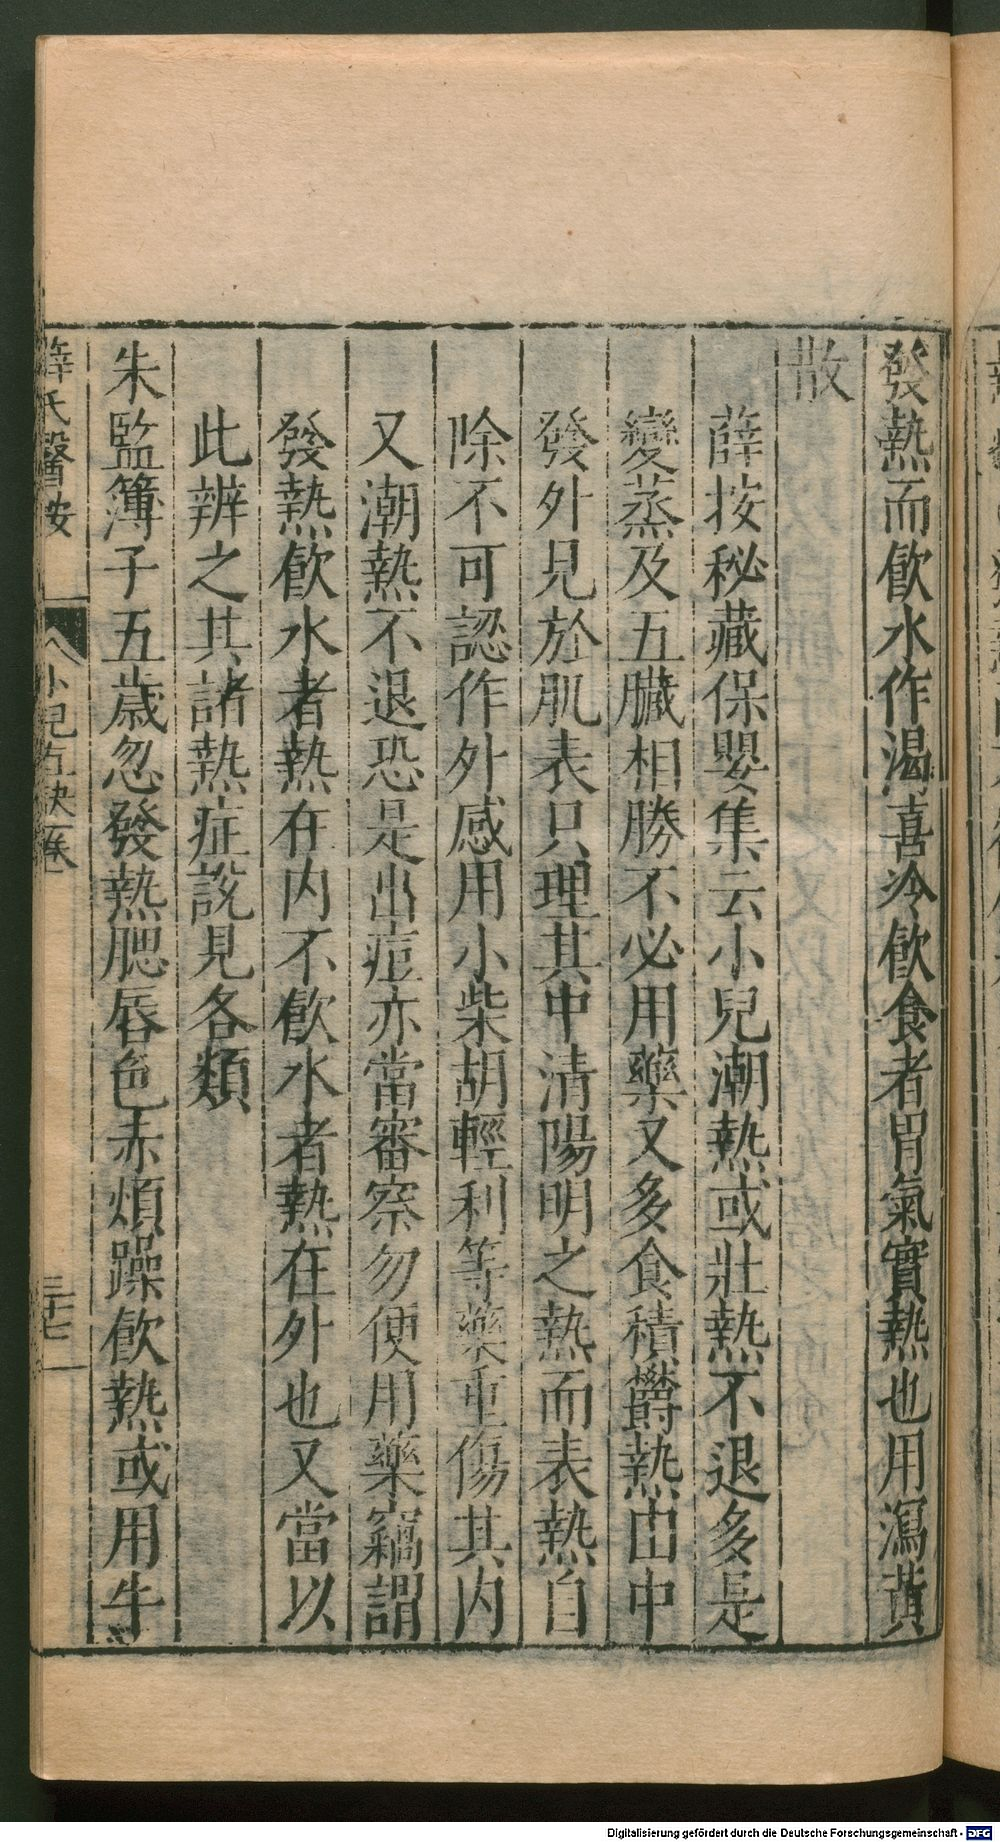 發熱而飲水作渴喜冷飲食者胃氣實熱也用瀉黃
散
薛按秘藏保嬰集云小兒潮熱或壯熱不退多是
變蒸及五臟相勝不必用藥又多食積鬱熱由中
發外見於肌表只理其中清陽明之熱而表熱自
除不可認作外感用小柴胡輕利等藥重傷其內
又潮熱不退恐是出痘亦當審察勿便用藥竊謂
發熱飲水者熱在內不飲水者熱在外也又當以
此辨之其諸熱症說見各類
朱監簿子五歲忽發熱腮唇色赤煩躁飲熱或用牛
薛氏醫按 小兒直訣卷 三十七
Digitalisierung gefördert durch die Deutsche Forschungsgemeinschaft - DFG